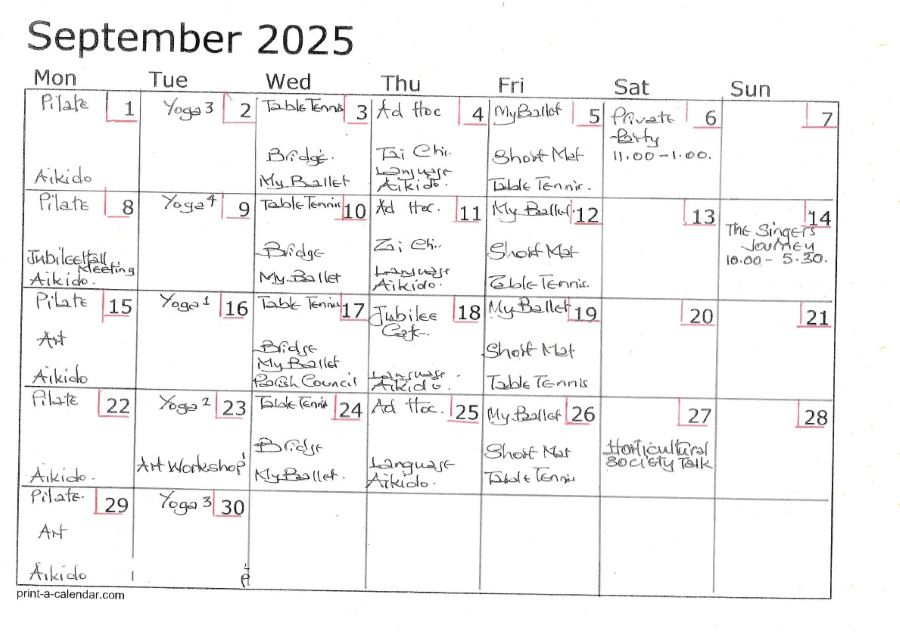 September 2025
Mon Tue Wed Thu Fri Sat Sun
Pilate 1
Aikido
Yoga 3 2
Table Tennis 3
Bridge.
My Ballet
Ad Hoc 4
Tai Chi.
Language
Aikido.
My Ballet 5
Short Mat
Table Tennis.
Private 6
Party
11.00-1.00.
7
Pilate 8
Jubilee Hall
Meeting
Aikido.
Yoga 4 9
Table Tennis 10
Bridge
My Ballet
Ad Hoc. 11
Tai Chi.
Language
Aikido.
My Ballet 12
Short Mat
Table Tennis.
13
14
The Singers
Journey
10.00 - 5.30.
Pilate 15
Art
Aikido
Yoga 1 16
Table Tennis 17
Bridge
My Ballet
Parish Council
Jubilee 18
Cafe.
Language.
Aikido.
My Ballet 19
Short Mat
Table Tennis
20
21
Pilate 22
Aikido.
Yoga 2 23
Art Workshop
Table Tennis 24
Bridge
My Ballet.
Ad Hoc. 25
Language
Aikido.
My Ballet 26
Short Mat
Table Tennis
27
Horticultural
Society Talk
28
Pilate. 29
Art
Aikido
Yoga 3 30
print-a-calendar.com